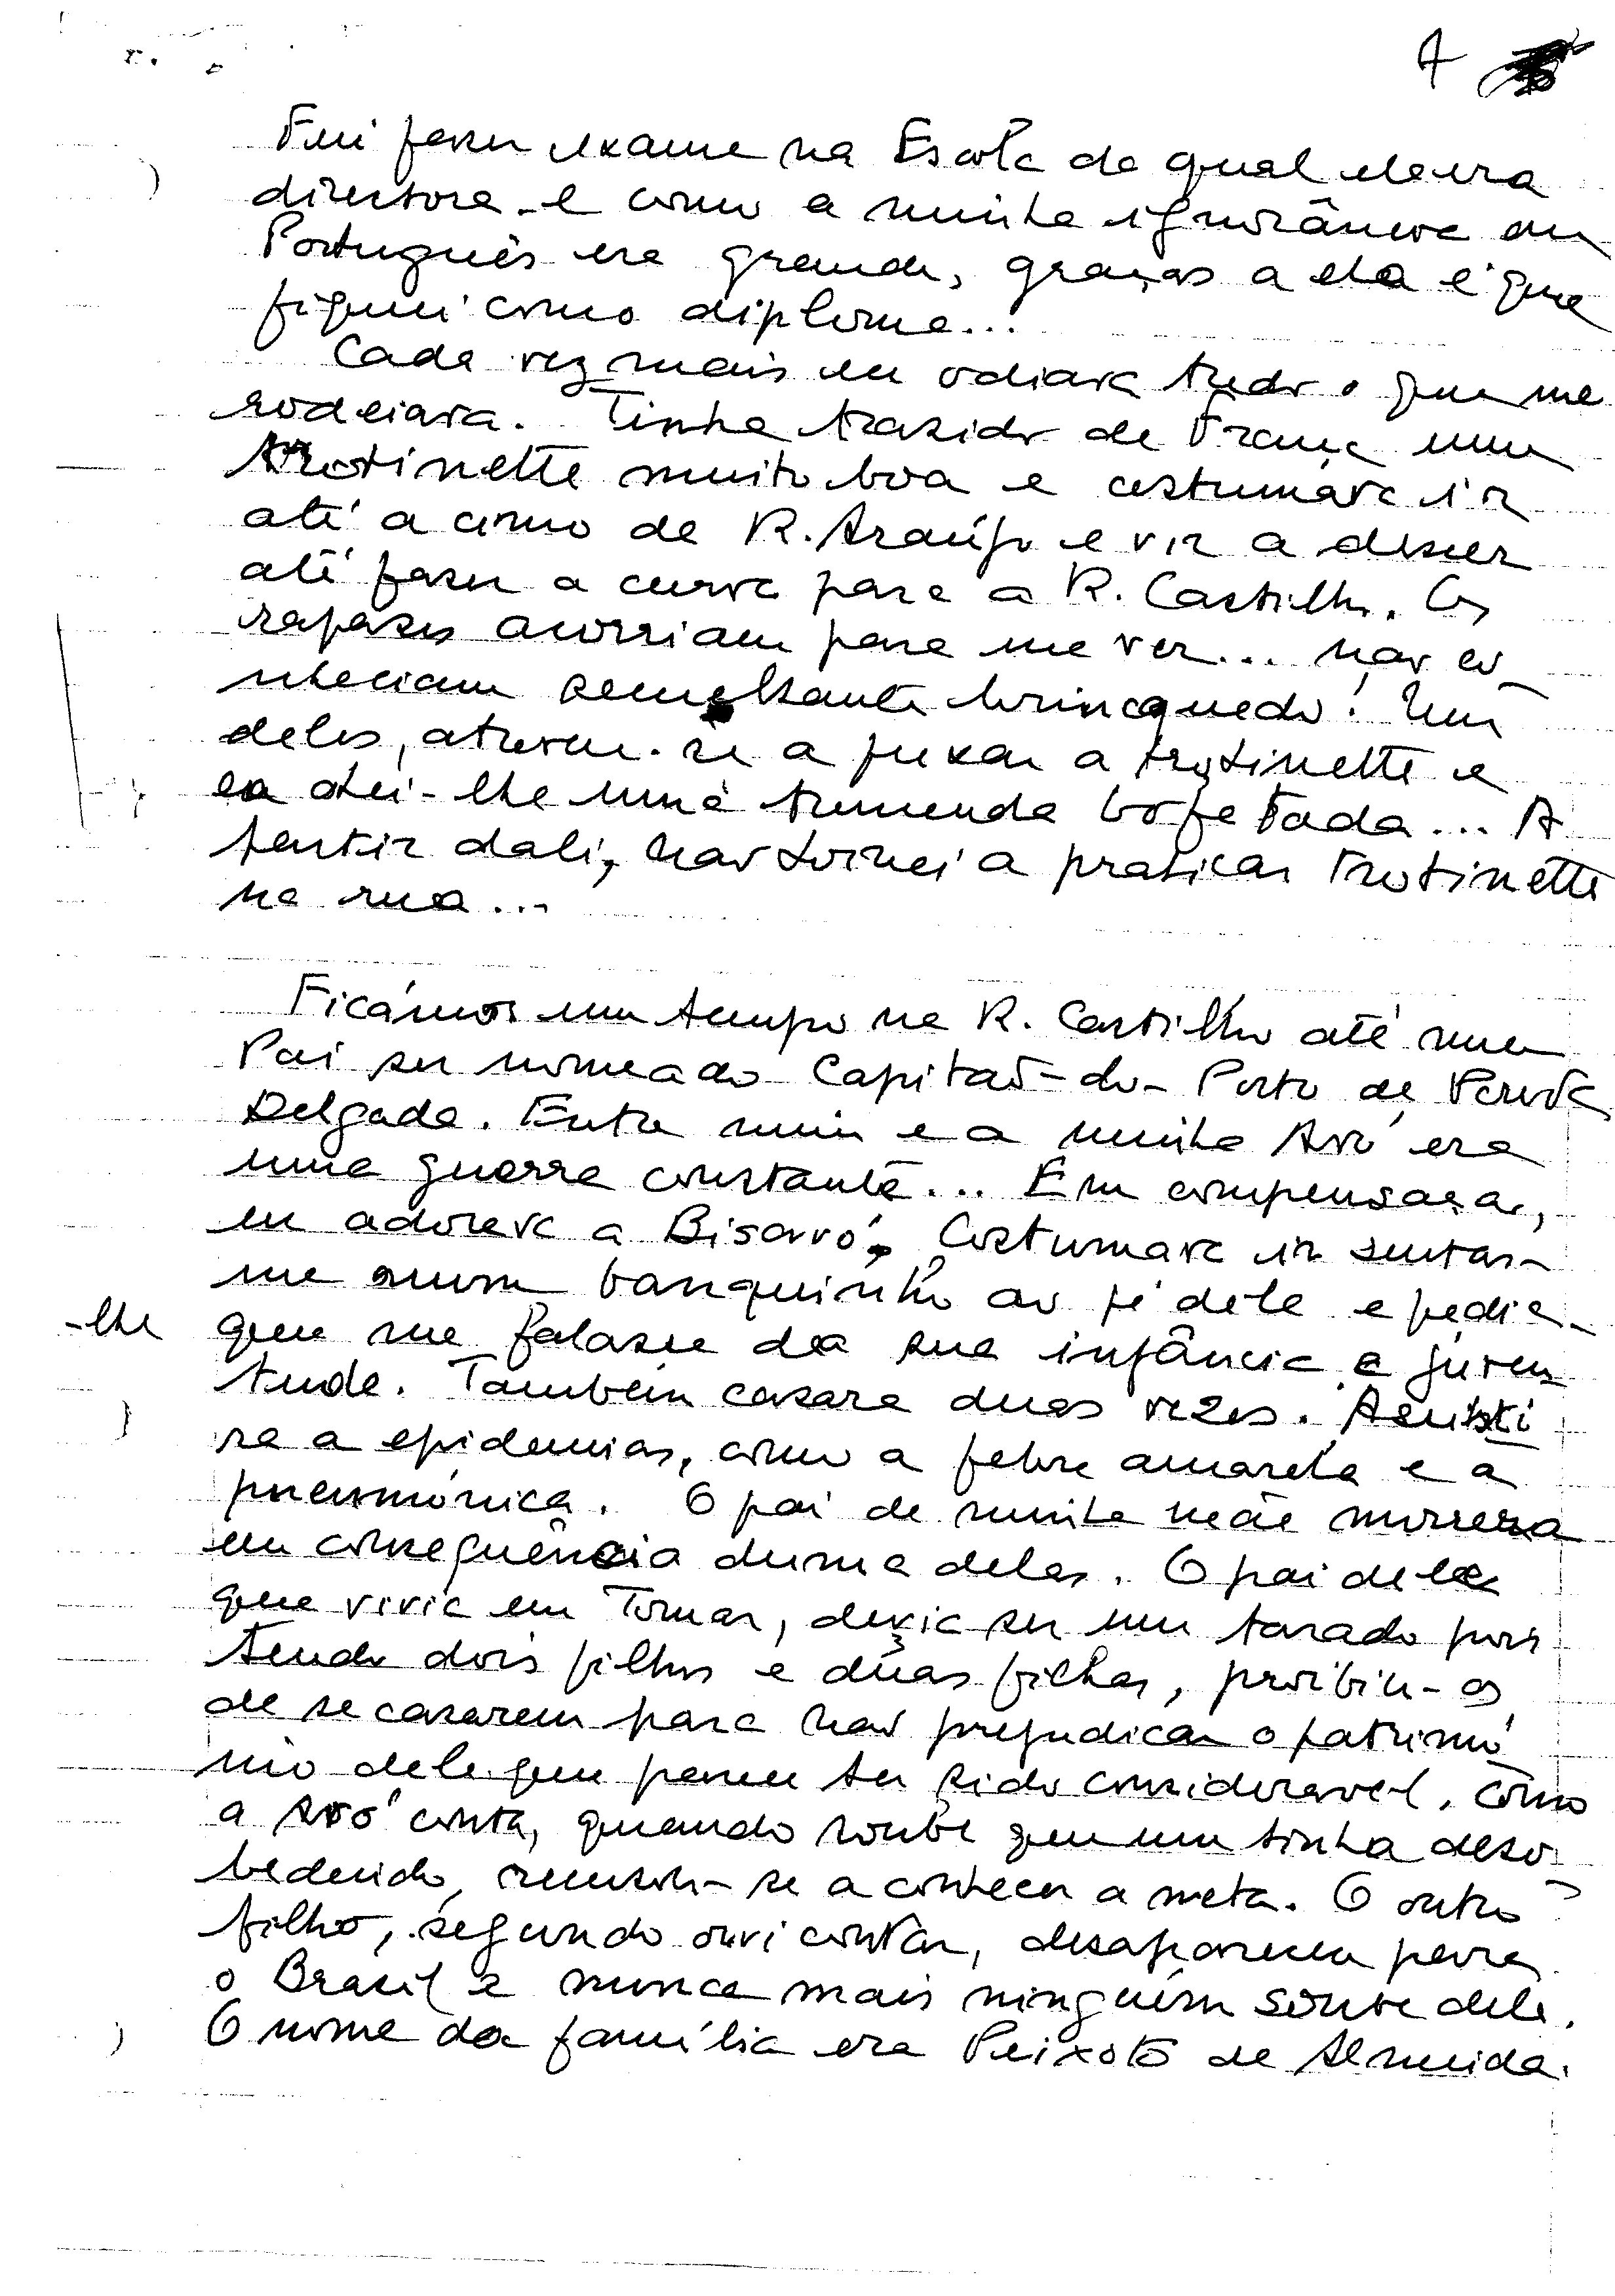 7
Fui fazer exame na Escola da qual ela era
directora e como a minha ignorância em
Português era grande, graças a ela é que
fiquei com o diploma...
Cada vez mais eu odiava tudo o que me
rodeiava. Tinha trazido de França uma
trotinette muito boa e costumava ir
até a cimo da R. Araújo e vir a descer
até fazer a curva para a R. Castilho. Os
rapazes acorriam para me ver... não co_
nheciam semelhante brincquedo! Um
deles, atreveu-se a puxar a trotinette e
eu dei-lhe uma tremenda bofetada... A
partir dali, não tornei a praticar trotinette
na rua...
Ficámos um tempo na R. Castilho até meu
Pai ser nomeado Capitão-do-Porto de Ponta
Delgada. Entre mim e a minha Avó era
uma guerra constante... Em compensação,
eu adorava a Bisavó. Costumava ir sentar-
me num banquinho ao pé dela e pedia-
-lhe que me falasse da sua infância e juven
tude. Também casara duas vezes. Assisti
ra a epidemias, como a febre amarela e a
pneumónica. O pai de minha mãe morrera
em consequência duma delas. O pai dele
que vivia em Tomar, devia ser um tarado pois
tendo dois filhos e duas filhas, proibiu-os
de se casarem para não prejudicar o patrimó
nio dele que parece ter sido considerável. Como
a Avó conta, quando soube que um tinha deso
bedecido, recusou-se a conhecer a neta. O outro
filho, segundo ouvi contar, desapareceu para
o Brasil e nunca mais ninguém soube dele.
O nome da família era Peixoto de Almeida.